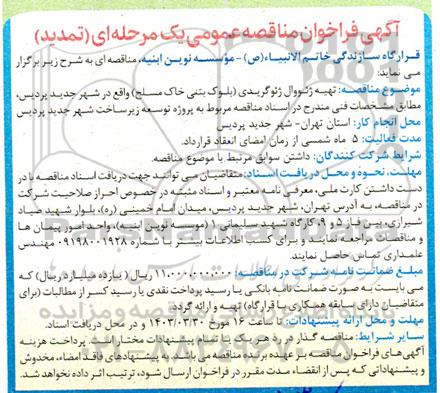 آگهی فراخوان مناقصه عمومی یک مرحله‌ای (تمدید)
قرارگاه سازندگی خاتم الانبیاء(ص) - مؤسسه نوین ابنیه، مناقصه ای به شرح زیر برگزار
می نماید:
موضوع مناقصه: تهیه ژئووال ژئوگریدی (بلوک بتنی خاک مسلح) واقع در شهر جدید پردیس،
مطابق مشخصات فنی مندرج در اسناد مناقصه مربوط به پروژه توسعه زیرساخت شهر جدید پردیس
محل انجام کار: استان تهران- شهر جدید پردیس
مدت فعالیت: ۵ ماه شمسی از زمان امضای انعقاد قرارداد.
شرایط شرکت کنندگان: داشتن سوابق مرتبط با موضوع مناقصه.
مهلت، نحوه و محل دریافت اسناد: متقاضیان می توانند جهت دریافت اسناد مناقصه با در
دست داشتن کارت ملی، معرفی نامه معتبر و اسناد مثبته در خصوص احراز صلاحیت شرکت
در مناقصه، به آدرس تهران، شهر جدید پردیس، میدان امام خمینی (ره)، بلوار شهید صیاد
شیرازی، بین فاز ۵ و ۹ کارگاه شهید سلیمانی ۱ (موسسه نوین ابنیه)، واحد امور پیمان ها
و مناقصات مراجعه نمایند و برای کسب اطلاعات بیشتر با شماره ۰۹۱۹۸۰۰۱۹۲۸ مهندس
علمداری تماس حاصل نمایند.
مبلغ ضمانت نامه شرکت در مناقصه: ۱۱.۰۰۰.۰۰۰.۰۰۰ ریال (یازده میلیارد ریال) که
می بایست به صورت ضمانت نامه بانکی یا رسید پرداخت نقدی یا رسید کسر از مطالبات (برای
متقاضیان دارای سابقه همکاری با قرارگاه) تهیه و ارائه گردد.
مهلت و محل ارائه پیشنهادات: تا ساعت ۱۶ مورخ ۱۴۰۳/۰۳/۳۰ و در محل دریافت اسناد.
سایر شرایط: مناقصه گذار در رد هر یک یا تمام پیشنهادات مختار است. پرداخت هزینه
آگهی‌های فراخوان مناقصه بر عهده برنده مناقصه می باشد. به پیشنهادهای فاقد امضاء، مخدوش
و پیشنهاداتی که پس از انقضاء مدت مقرر در فراخوان ارسال شود، ترتیب اثر داده نخواهد شد.